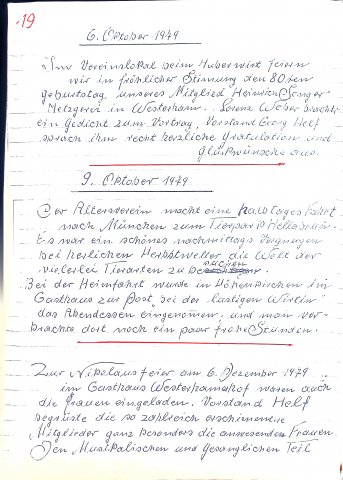 19
6. Oktober 1979
Im Vereinslokal beim Huberwirt feiern
wir in fröhlicher Stimung den 80zten
Geburtstag, unseres Mitglied Heinrich Senger
Metzgerei in Westerham. Lorenz Weber brachte
ein Gedicht zum Vortrag, Vorstand Georg Helf
sprach ihm recht herzliche Gratulation und
Glückwünsche aus.
9. Oktober 1979
Der Altenverein macht eine halbtages Fahrt
nach München zum Tierpark Hellabrunn.
Es war ein schönes nachmittags Vergnügen
bei herlichen Herbstwetter die Welt der
vielerlei Tierarten zu besuchen.
Bei der Heimfahrt wurde in Höhenkirchen im
Gasthaus zur Post, bei der lustigen Wirtin
das Abendessen eingenommen, und man ver-
brachte dort noch ein paar frohe Stunden.
Zur Nikolausfeier am 6. Dezember 1979
im Gasthaus Westerhamerhof waren auch
die Frauen eingeladen. Vorstand Helf
begrüste die so zahlreich erschienene
Mitglieder ganz besonders die anwesenden Frauen.
Den Musikalischen und Gesanglichen Teil